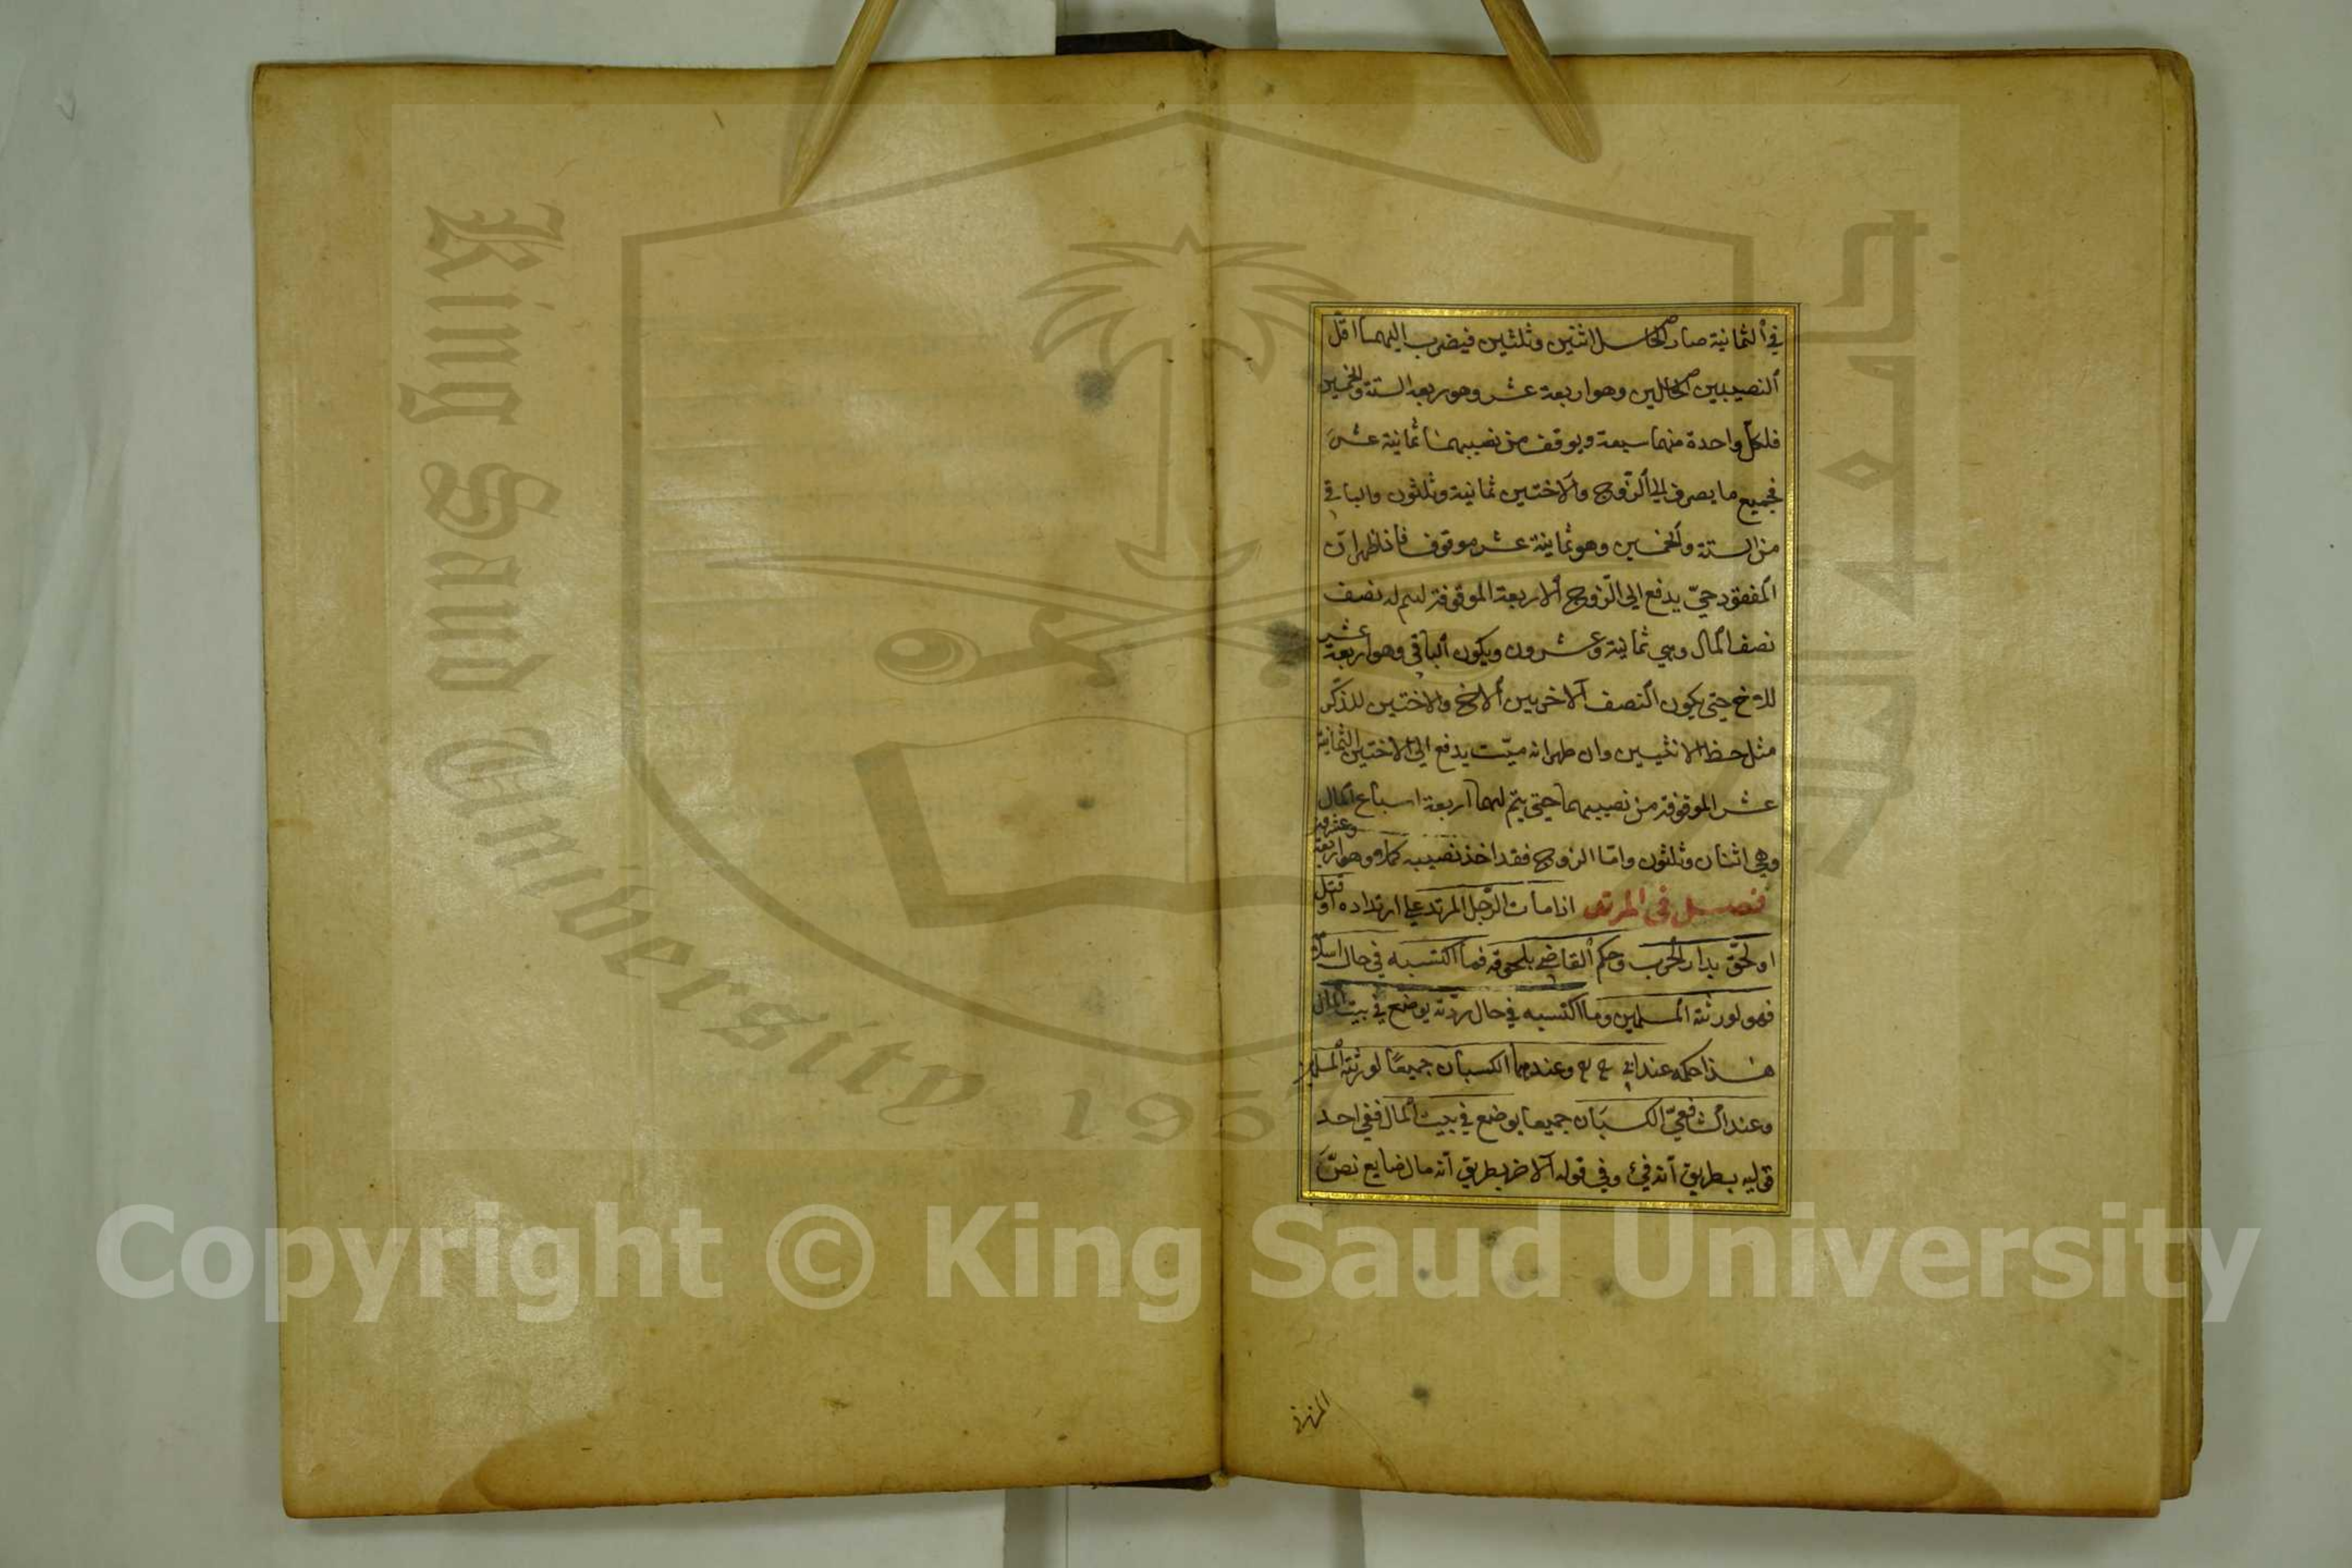 في الثمانية صار الحاصل اثنين وثلثين فيضرب اليهما اقل
النصيبين الحاصلين وهو اربعة عشر وهو ربع الستة والخمسين
فلكل واحدة منهما سبعة ويوقف من نصيبهما ثمانية عشر
فجميع ما يصرف الي الزوج والاختين ثمانية وثلثون والباقي
من الستة والخمسين وهو ثمانية عشر موقوف فاذا ظهر ان
المفقود حيّ يدفع الي الزوج الاربعة الموقوفة ليتم له نصف
نصف المال وهي ثمانية وعشرون ويكون الباقي وهو اربعة عشر
للاخ حتي يكون النصف الاخر بين الاخ والاختين للذكر
مثل حظ الانثيين وان ظهر انه ميّت يدفع الي الاختين الثمانية
عشر الموقوفة من نصيبهما حتي يتم لهما اربعة اسباع المال
وهي اثنان وثلثون واما الزوج فقد اخذ نصيبه كملا وهو اربعة وعشرون
فصل في المرتد اذا مات الرّجل المرتد علي ارتداده او قتل
او لحق بدار الحرب وحكم القاضي بلحوقه فما اكتسبه في حال اسلامه
فهو لورثته المسلمين وما اكتسبه في حال ردّته يوضع في بيت المال
هذا حكمه عند ابي ح رح وعندهما الكسبان جميعًا لورثته المسلمين
وعند الشافعيّ الكسبان جميعا يوضع في بيت المال ففي احد
قوليه بطريق انه فيئ وفي قوله الاخر بطريق انه مال ضايع نصّ
King Saud University
1957
Copyright © King Saud University